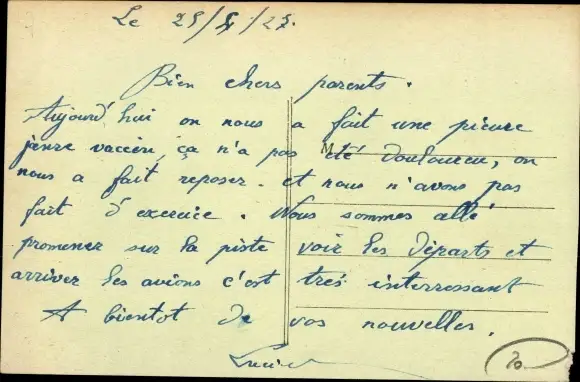 Le 25/4/27.
Bien chers parents.
Aujourd'hui on nous a fait une picure
jenre vaccin, ça n'a pas été douloureu, on
M
nous a fait reposer. et nous n'avons pas
fait d'exercice. Nous sommes allé
promener sur la piste voir les départs et
arriver les avions c'est très interressant
A bientot de vos nouvelles.
Lucien
20